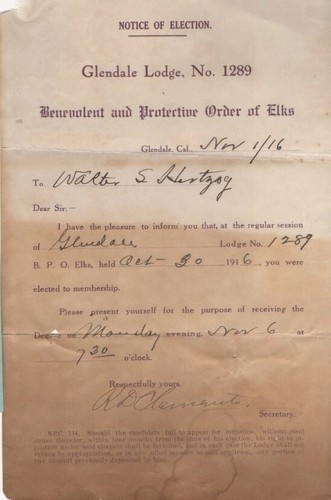 NOTICE OF ELECTION.
Glendale Lodge, No. 1289
Benevolent and Protective Order of Elks
Glendale, Cal., Nov 1/16
To Walter S Hertzog
Dear Sir:—
I have the pleasure to inform you that, at the regular session
of Glendale Lodge No. 1289
B. P. O. Elks, held Oct 30 1916, you were
elected to membership.
Please present yourself for the purpose of receiving the
on Monday evening, Nov 6 at
7 30 o'clock.
Respectfully yours,
Secretary.
SEC. 134. Should the candidate fail to appear for initiation, without good
cause therefor, within four months from the date of his election, his right to
under said election shall be forfeited, and in such case the Lodge shall not